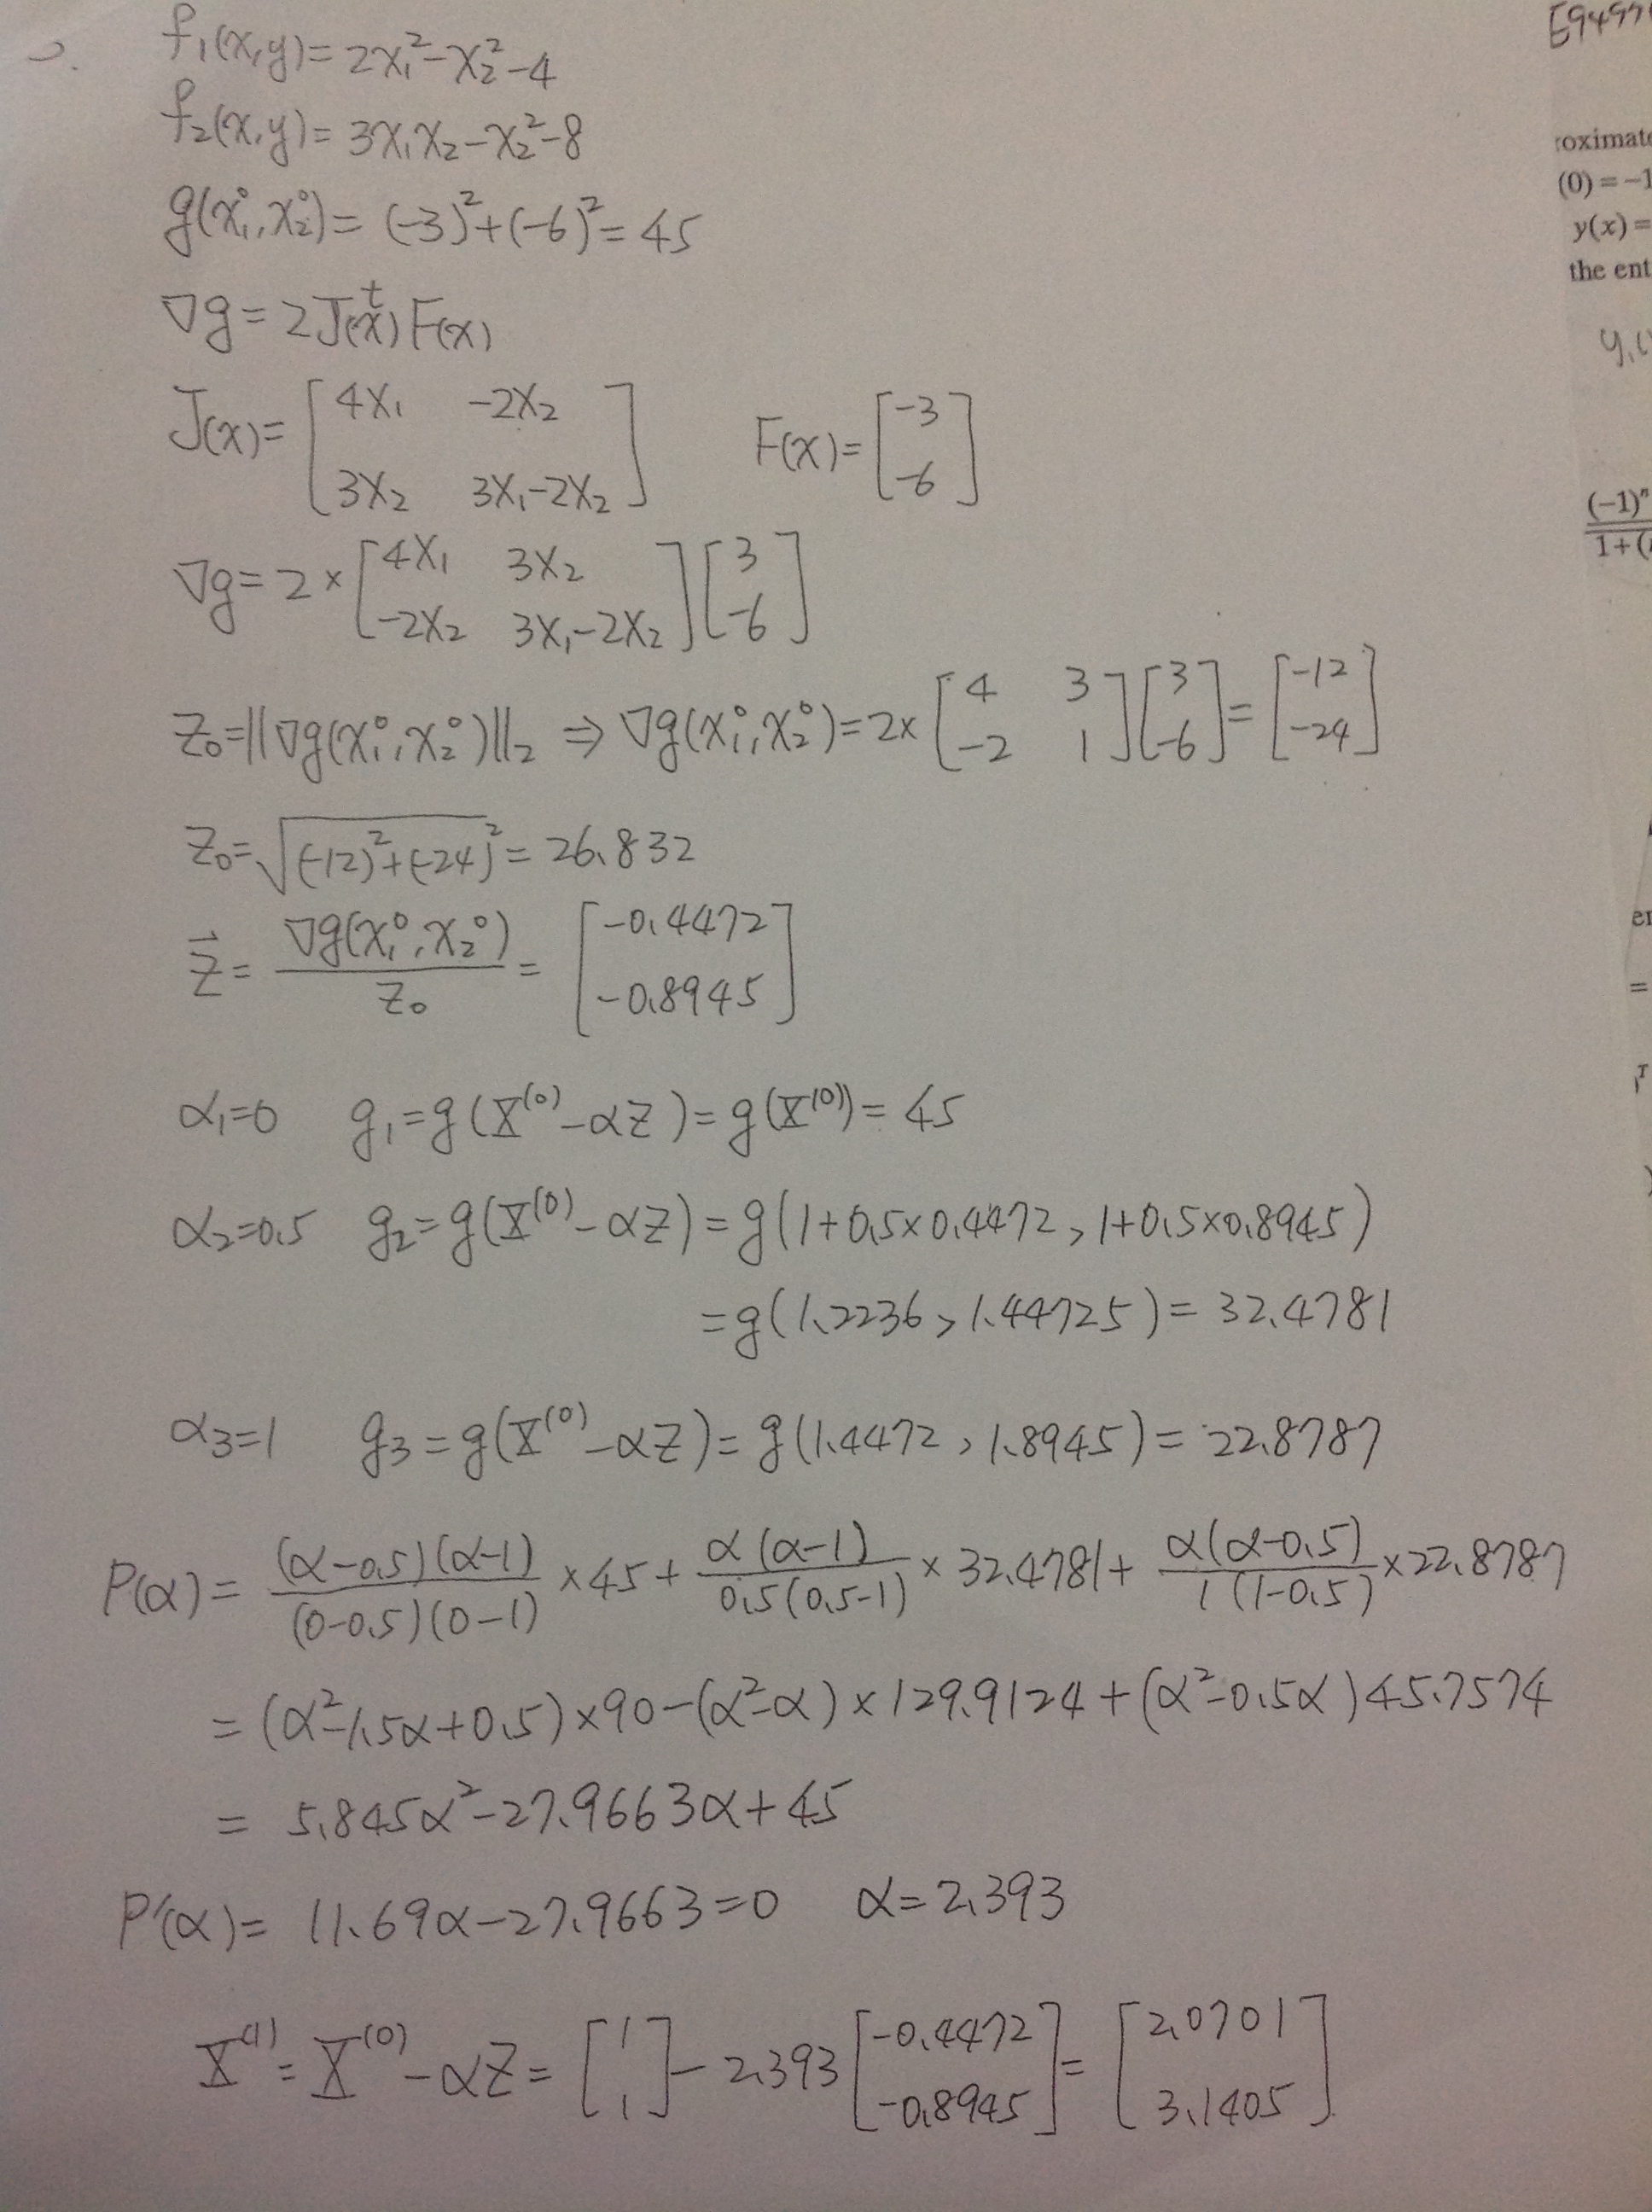 2.
f₁(x,y)= 2x₁²-x₂²-4
f₂(x,y)= 3x₁x₂-x₂²-8
g(x₁⁰,x₂⁰)= (-3)²+(-6)²= 45
∇g= 2J(x)ᵗF(x)
J(x)= [4x₁ -2x₂; 3x₂ 3x₁-2x₂] F(x)= [-3; -6]
∇g= 2×[4x₁ 3x₂; -2x₂ 3x₁-2x₂][3; -6]
z₀=||∇g(x₁⁰,x₂⁰)||₂ ⇒ ∇g(x₁⁰,x₂⁰)=2×[4 3; -2 1][3; -6]=[-12; -24]
z₀=√((-12)²+(-24)²)= 26.832
z⃗= ∇g(x₁⁰,x₂⁰)/z₀ = [-0.4472; -0.8945]
α₁=0 g₁=g(X⁽⁰⁾-αz)=g(X⁽⁰⁾)= 45
α₂=0.5 g₂=g(X⁽⁰⁾-αz)=g(1+0.5×0.4472, 1+0.5×0.8945)
=g(1.2236, 1.44725)= 32.4781
α₃=1 g₃=g(X⁽⁰⁾-αz)=g(1.4472, 1.8945)= 22.8787
P(α)= (α-0.5)(α-1)/(0-0.5)(0-1) ×45+ α(α-1)/0.5(0.5-1) ×32.4781+ α(α-0.5)/1(1-0.5) ×22.8787
=(α²-1.5α+0.5)×90-(α²-α)×129.9124+(α²-0.5α)45.7574
= 5.845α²-27.9663α+45
P'(α)= 11.69α-27.9663=0 α=2.393
X⁽¹⁾=X⁽⁰⁾-αz=[1; 1]-2.393[-0.4472; -0.8945]=[2.0701; 3.1405]
E9497
(0) = −1
y(x) =
the ent
(−1)ⁿ
1 + (